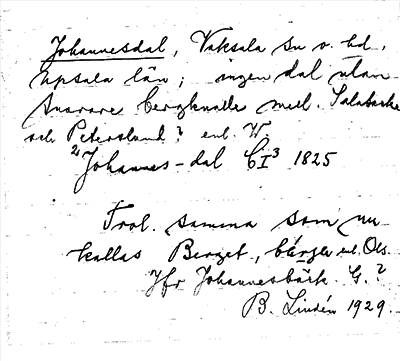 Johannesdal, Vaksala sn o. hd.,
Upsala län; ingen dal utan
snarare bergknalle mell. Salabacke
och Peterslund? enl. W.
2) Johannes-dal C I³ 1825
Trol. samma som nu
kallas Berget, bärge enl. Ols.
Jfr Johannesbäck. G.?
B. Lindén 1929.